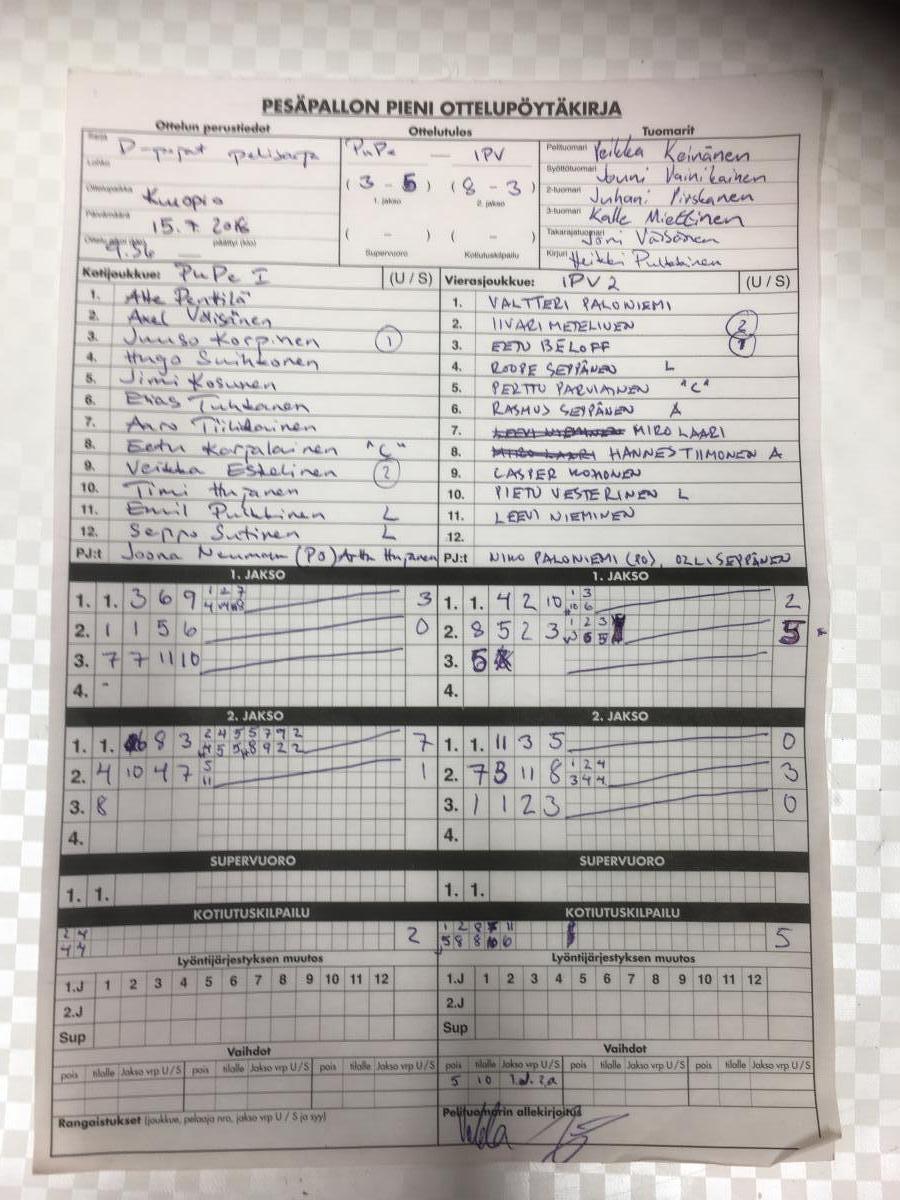 PESÄPALLON PIENI OTTELUPÖYTÄKIRJA
Ottelun perustiedot Ottelutulos Tuomarit
Sarja D-pojat pelisarja PuPe — IPV Pelituomari Veikka Keinänen
Lohko Syöttötuomari Jouni Vainikainen
(3 - 5) (8 - 3)
1. jakso 2. jakso
Ottelupaikka Kuopio 2-tuomari Juhani Pirskanen
Päivämäärä 15.7.2018 3-tuomari Kalle Miettinen
( - ) ( - ) Takarajatuomari Joni Väisänen
9.56 — päättyi (klo) Supervuoro Kotiutuskilpailu Kirjuri Heikki Pulkkinen
Kotijoukkue: PuPe I (U / S) Vierasjoukkue: IPV 2 (U / S)
1. Atte Penttilä 1. VALTTERI PALONIEMI
2. Axel Väisänen 2. IIVARI METELINEN 2
3. Juuso Korpinen 1 3. EETU BELOFF 1
4. Hugo Suihkonen 4. ROOPE SEPPÄNEN L
5. Jimi Kosunen 5. PERTTU PARVIAINEN "C"
6. Elias Tuhkanen 6. RASMUS SEPPÄNEN A
7. Aaro Tiilikainen 7. MIRO LAARI
8. Eetu Karjalainen "C" 8. HANNES TIIMONEN A
9. Veikka Eskelinen 2 9. CASPER KOMONEN
10. Timi Hujanen 10. PIETU VESTERINEN L
11. Emil Pulkkinen L 11. LEEVI NIEMINEN
12. Seppo Sutinen L 12.
PJ:t Joona Neumann (PO) Arttu Hujanen PJ:t NIKO PALONIEMI (PO), OLLI SEPPÄNEN
1. JAKSO 1. JAKSO
1. 1. 3 6 9 3 1. 1. 4 2 10 2
2. 1 1 5 6 0 2. 8 5 2 3 5
3. 7 7 11 10 3. 5
4. - 4.
2. JAKSO 2. JAKSO
1. 1. 6 8 3 7 1. 1. 11 3 5 0
2. 4 10 4 7 1 2. 7 3 11 8 3
3. 8 3. 1 1 2 3 0
4. 4.
SUPERVUORO SUPERVUORO
1. 1. 1. 1.
KOTIUTUSKILPAILU KOTIUTUSKILPAILU
2 4 2 5
4 4
Lyöntijärjestyksen muutos Lyöntijärjestyksen muutos
1.J 1 2 3 4 5 6 7 8 9 10 11 12 1.J 1 2 3 4 5 6 7 8 9 10 11 12
2.J 2.J
Sup Sup
Vaihdot Vaihdot
pois tilalle Jakso vrp U / S pois tilalle Jakso vrp U / S pois tilalle Jakso vrp U / S pois tilalle Jakso vrp U / S pois tilalle Jakso vrp U / S pois tilalle Jakso vrp U / S
5 10 1.J. 2a
Rangaistukset (joukkue, pelaaja nro, jakso vrp U / S ja syy) Pelituomarin allekirjoitus